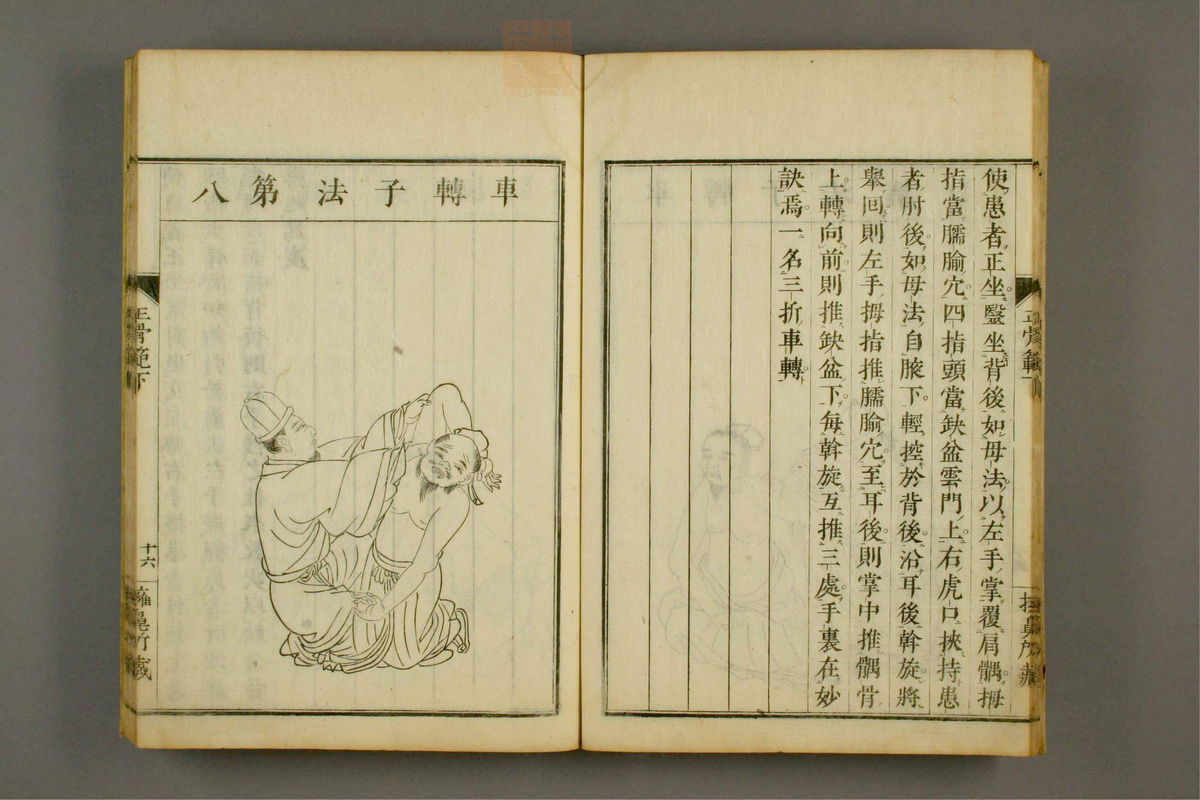 使患者正坐毉坐背後如母法以左手掌覆肩髃拇
指當臑腧穴四指頭當缺盆雲門上右虎口挾持患
者肘後如母法自腋下輕控於背後沿耳後斡旋將
舉囘則左手拇指推臑腧穴至耳後則掌中推髃骨
上轉向前則推缺盆下每斡旋互推三處手裏在妙
訣焉一名三折車轉
車轉子法第八
正骨範下
十六